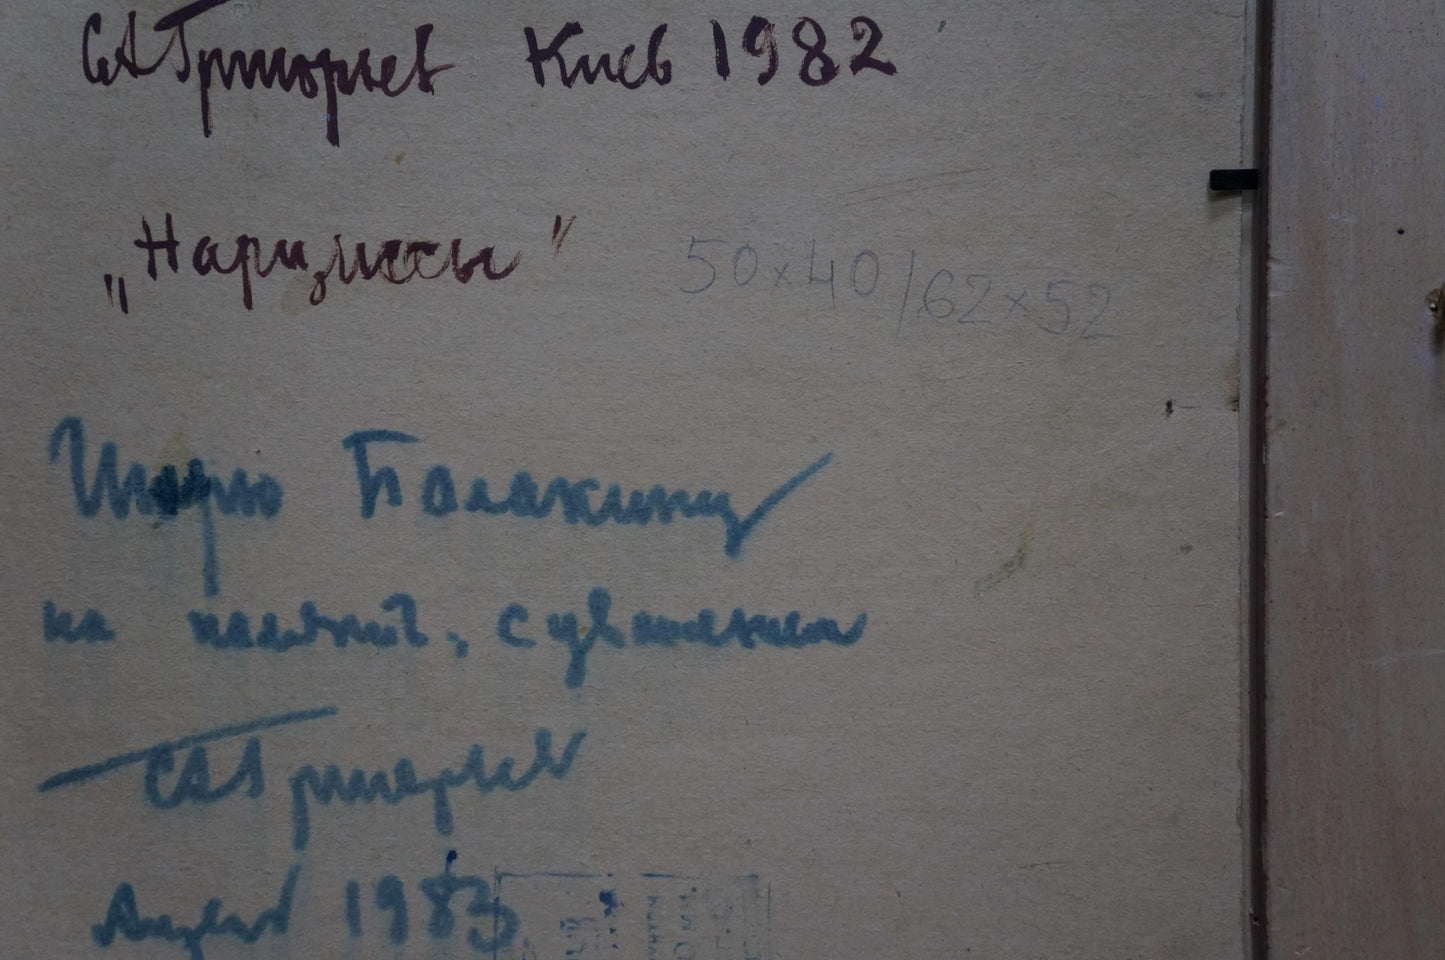 СА Григорьев Киев 1982
„Нарциссы"
50x40/62x52
Игорю Балакину
на память, с уважением
СА Григорьев
1983